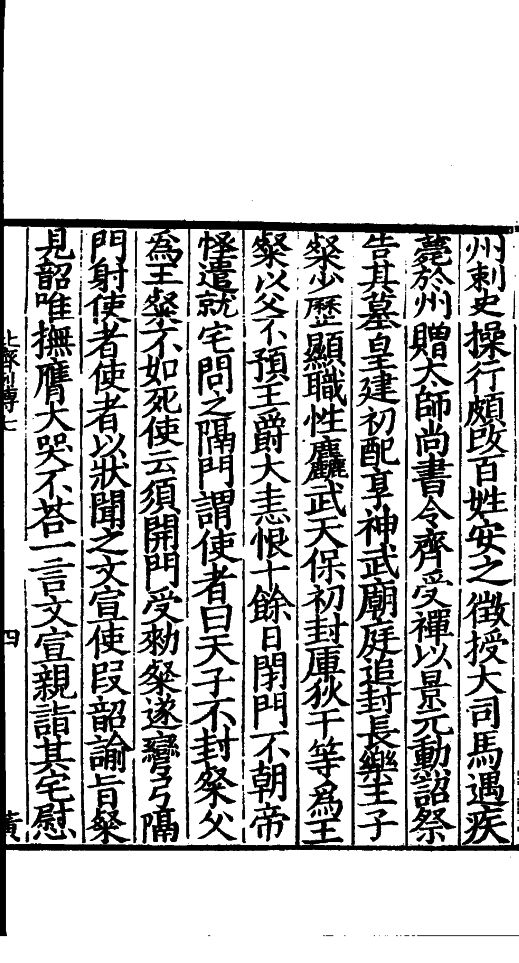 州刺史操行頗改百姓安之徵授大司馬遇疾
薨於州贈太師尚書令齊受禪以景元勳詔祭
告其墓皇建初配享神武廟庭追封長樂王子
粲少歷顯職性麤武天保初封厙狄干等爲王
粲以父不預王爵大恚恨十餘日閉門不朝帝
怪遣就宅問之隔門謂使者曰天子不封粲父
爲王粲不如死使云須開門受勑粲遂彎弓隔
門射使者使者以狀聞之文宣使段韶諭旨粲
見韶唯撫膺大哭不荅一言文宣親詣其宅慰
北齊列傳七 四 黃